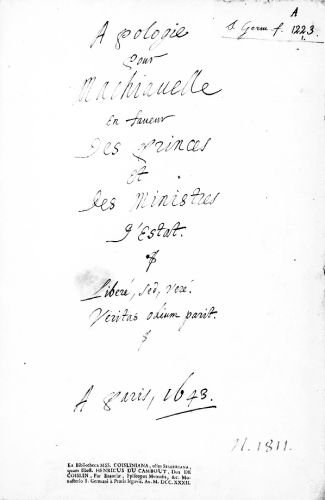 A
S. Germ f. 1223.
Apologie
pour
Machiauelle
en faueur
Des princes
et
des Ministres
d'Estat.
Liberé, sed, veré.
Veritas odium parit.
A paris, 1643.
N. 1811.
Ex Bibliotheca MSS. COISLINIANA, olim SEGUERIANA,
quam Illust. HENRICUS DU CAMBOUT, Dux DE
COISLIN, Par Franciæ, Episcopus Metensis, &c. Mo-
nasterio S. Germani à Pratis legavit. An. M. DCC. XXXII.